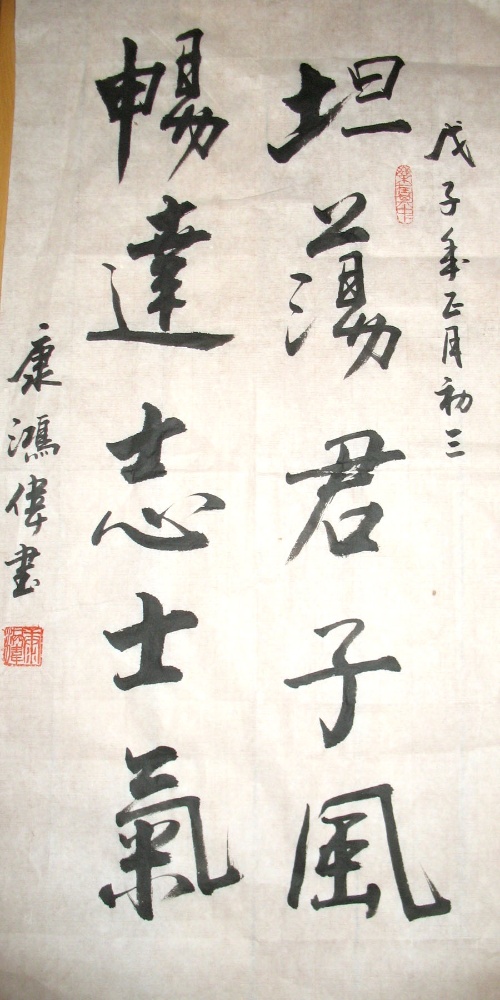 戊子年正月初三
坦蕩君子風
暢達志士氣
康鴻偉書